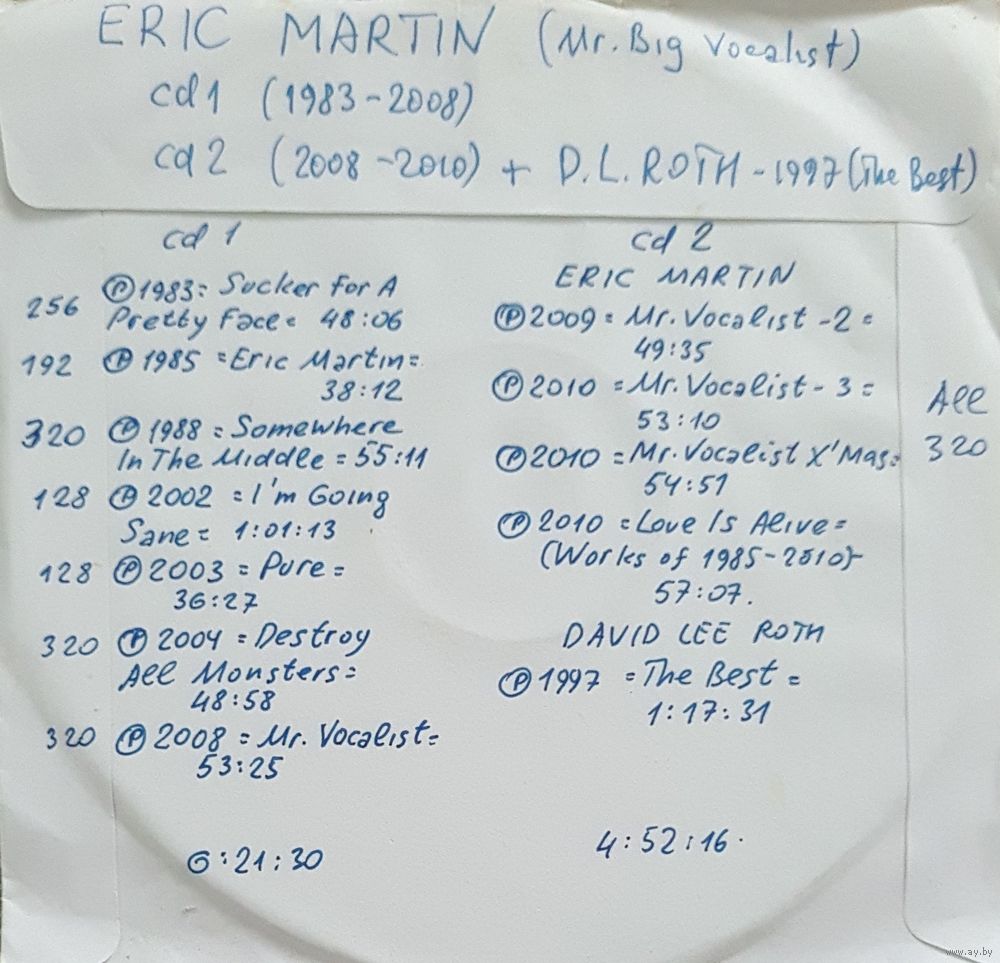 ERIC MARTIN (Mr. Big Vocalist)
cd 1 (1983-2008)
cd 2 (2008-2010) + D.L. ROTH - 1997 (The Best)
cd 1
256 Ⓟ 1983 = Sucker For A
Pretty Face = 48:06
192 Ⓟ 1985 = Eric Martin =
38:12
320 Ⓟ 1988 = Somewhere
In The Middle = 55:11
128 Ⓟ 2002 = I'm Going
Sane = 1:01:13
128 Ⓟ 2003 = Pure =
36:27
320 Ⓟ 2004 = Destroy
All Monsters =
48:58
320 Ⓟ 2008 = Mr. Vocalist =
53:25
6:21:30
cd 2
ERIC MARTIN
Ⓟ 2009 = Mr. Vocalist - 2 =
49:35
Ⓟ 2010 = Mr. Vocalist - 3 =
53:10
Ⓟ 2010 = Mr. Vocalist X'Mas =
54:51
Ⓟ 2010 = Love Is Alive =
(Works of 1985-2010)
57:07.
DAVID LEE ROTH
Ⓟ 1997 = The Best =
1:17:31
4:52:16.
All
320
www.ay.by